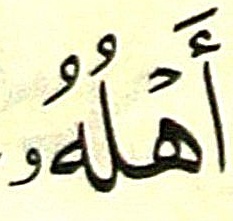 أَهْلُهُۥ